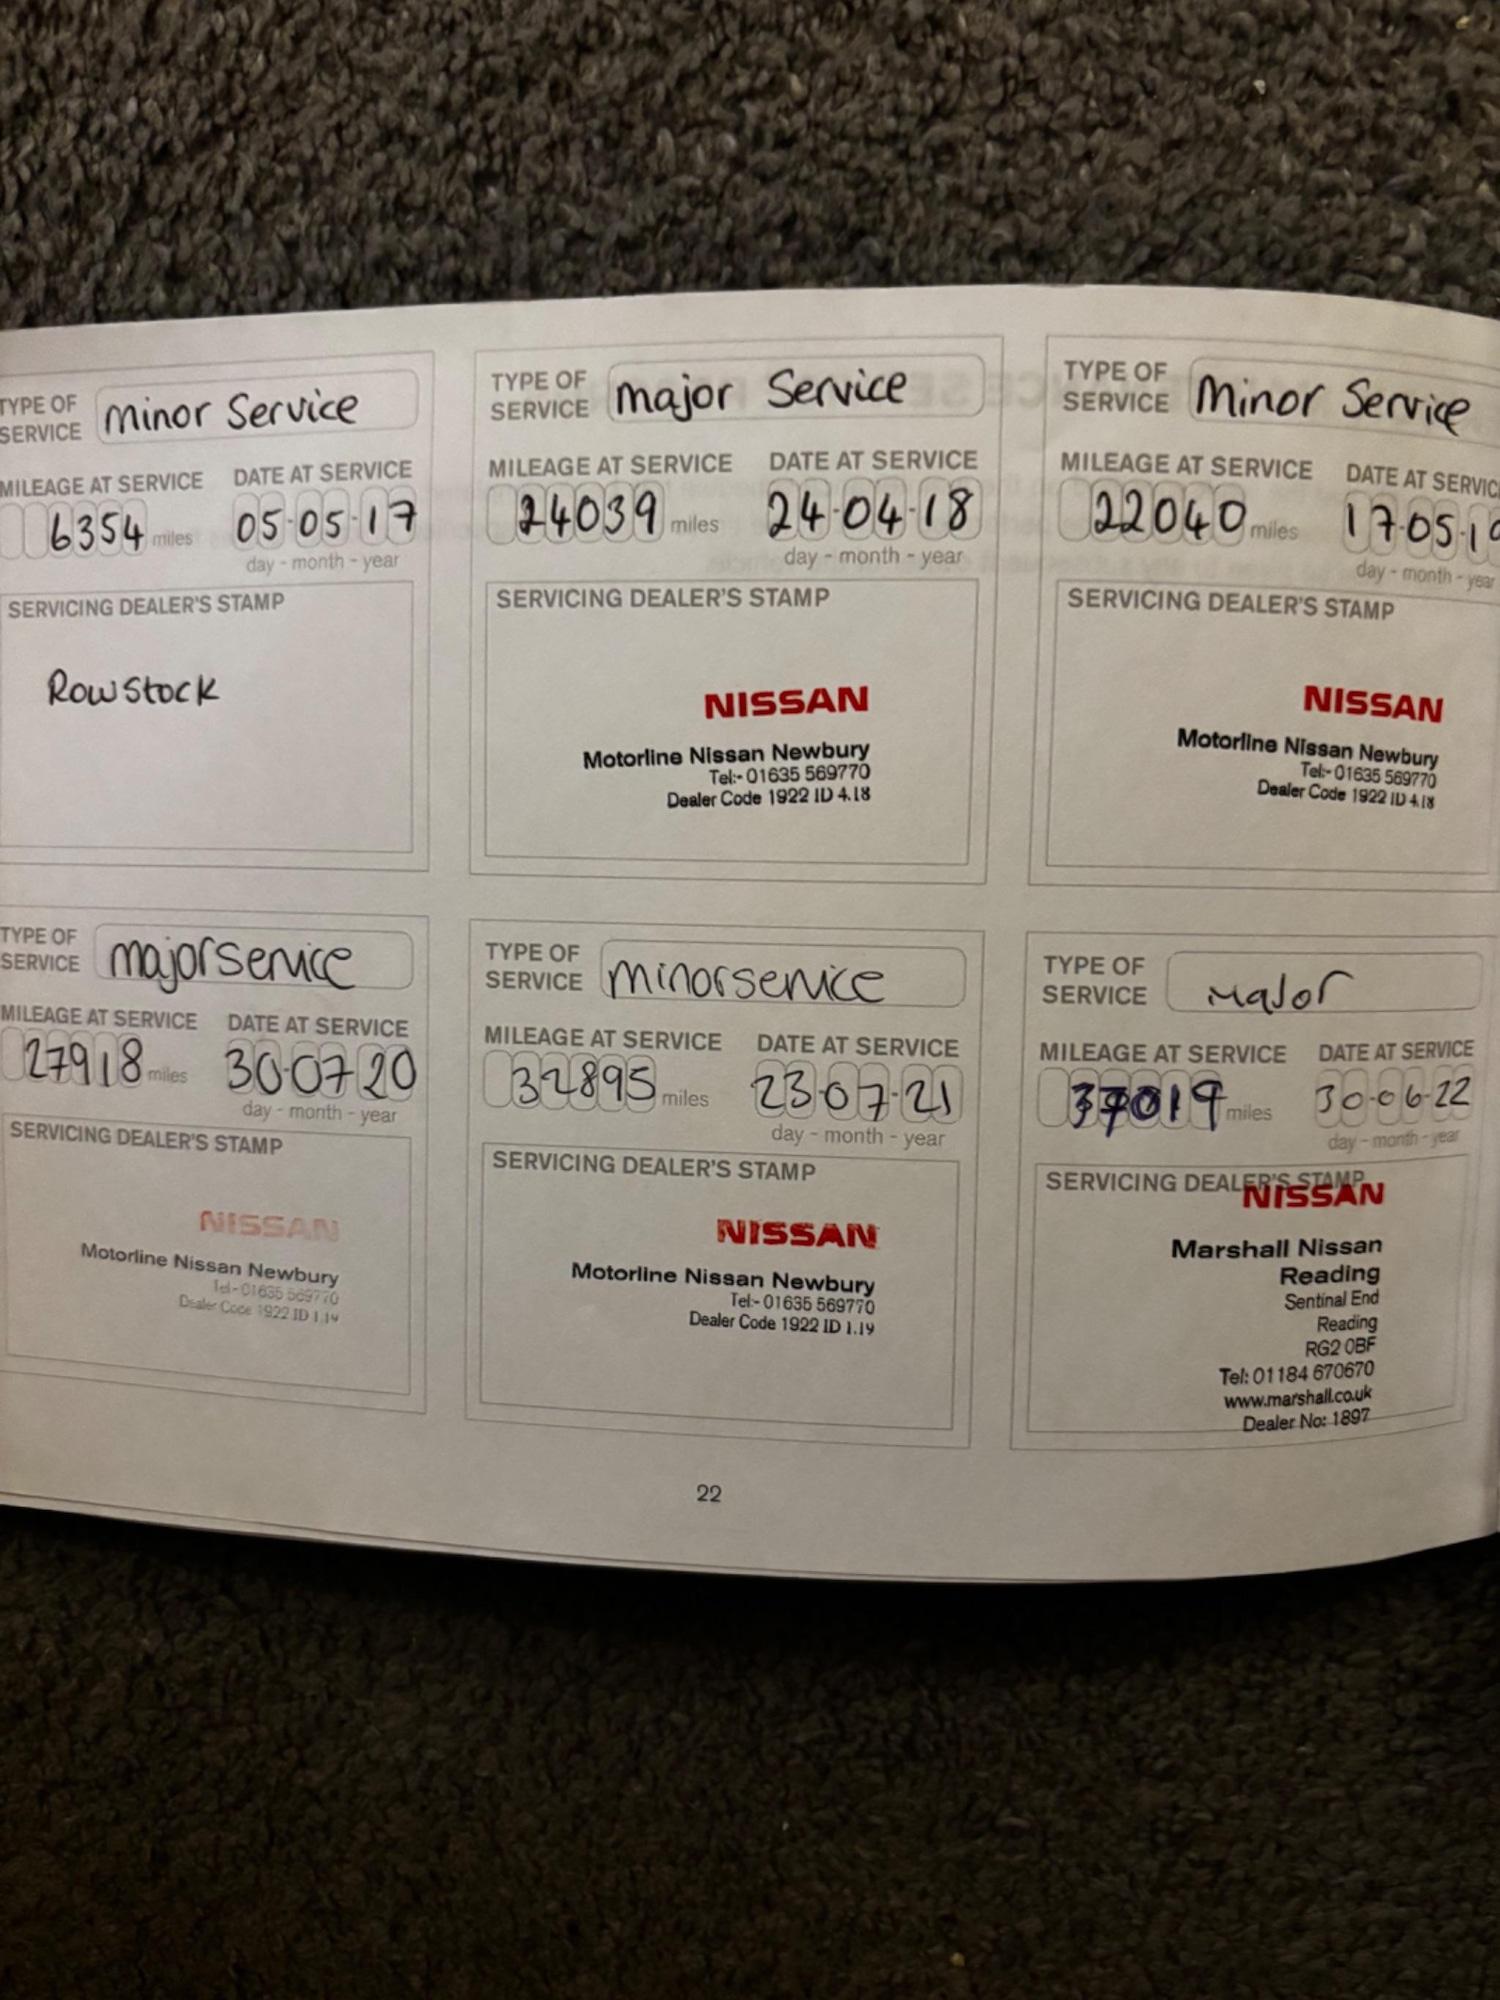 TYPE OF
SERVICE
Minor Service
MILEAGE AT SERVICE
DATE AT SERVICE
6354 miles
05-05-17
day - month - year
SERVICING DEALER'S STAMP
Rowstock
TYPE OF
SERVICE
Major Service
MILEAGE AT SERVICE
DATE AT SERVICE
24039 miles
24-04-18
day - month - year
SERVICING DEALER'S STAMP
NISSAN
Motorline Nissan Newbury
Tel:- 01635 569770
Dealer Code 1922 ID 4.18
TYPE OF
SERVICE
Minor Service
MILEAGE AT SERVICE
DATE AT SERVIC
22040 miles
17-05-1
day - month - year
SERVICING DEALER'S STAMP
NISSAN
Motorline Nissan Newbury
Tel:- 01635 569770
Dealer Code 1922 ID 4.18
TYPE OF
SERVICE
Major service
MILEAGE AT SERVICE
DATE AT SERVICE
27918 miles
30-07-20
day - month - year
SERVICING DEALER'S STAMP
NISSAN
Motorline Nissan Newbury
Tel:- 01635 569770
Dealer Code 1922 ID 1.19
TYPE OF
SERVICE
Minor service
MILEAGE AT SERVICE
DATE AT SERVICE
32895 miles
23-07-21
day - month - year
SERVICING DEALER'S STAMP
NISSAN
Motorline Nissan Newbury
Tel:- 01635 569770
Dealer Code 1922 ID 1.19
TYPE OF
SERVICE
Major
MILEAGE AT SERVICE
DATE AT SERVICE
37019 miles
30-06-22
day - month - year
SERVICING DEALER'S STAMP
NISSAN
Marshall Nissan
Reading
Sentinal End
Reading
RG2 0BF
Tel: 01184 670670
www.marshall.co.uk
Dealer No: 1897
22